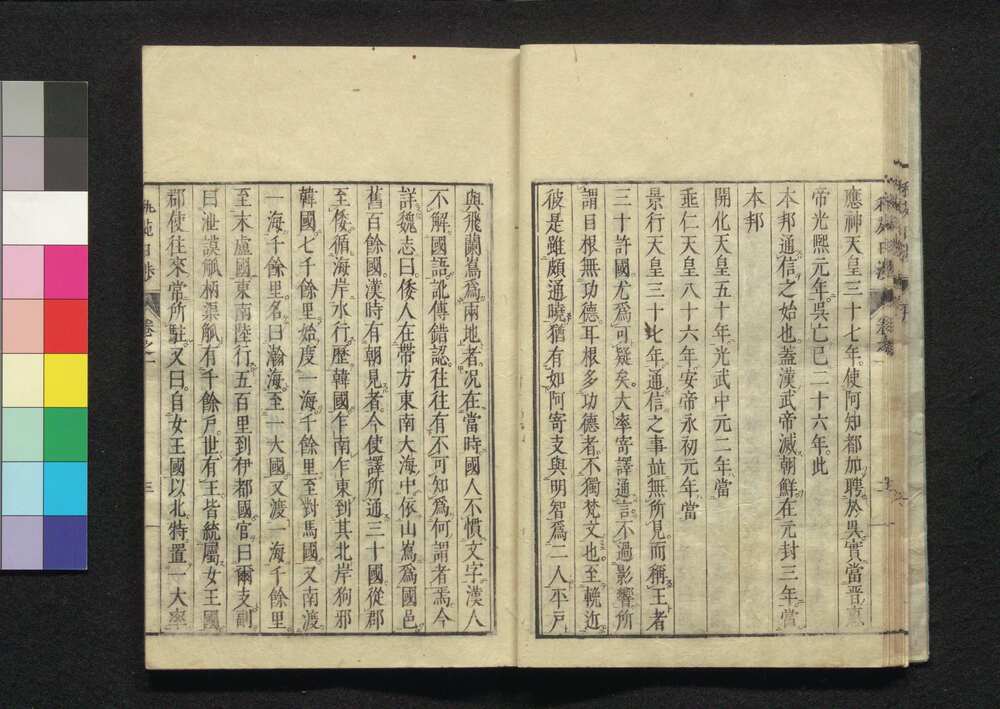 應神天皇三十七年使阿知都加聘於吳實當晋惠
帝光熙元年吳亡已二十六年此
本邦通信之始也蓋漢武帝滅朝鮮在元封三年當
本邦
開化天皇五十年光武中元二年當
垂仁天皇八十六年安帝永初元年當
景行天皇三十七年通信之事並無所見而稱王者
三十許國尤爲可疑矣大率寄譯通言不過影響所
謂目根無功德耳根多功德者不獨梵文也至輓近
彼是雖頗通曉猶有如阿寄支與明智爲二人平戶
與飛蘭嶌爲兩地者况在當時國人不慣文字漢人
不解國語訛傳錯認往往有不可知爲何謂者焉今
詳魏志曰倭人在帶方東南大海中依山嶌爲國邑
舊百餘國漢時有朝見者今使譯所通三十國從郡
至倭循海岸水行歷韓國乍南乍東到其北岸狗邪
韓國七千餘里始度一海千餘里至對馬國又南渡
一海千餘里名曰瀚海至一大國又渡一海千餘里
至末盧國東南陸行五百里到伊都國官曰爾支副
曰泄謨觚柄渠觚有千餘戶世有王皆統屬女王國
郡使往來常所駐又曰自女王國以北特置一大率
卷之一
三